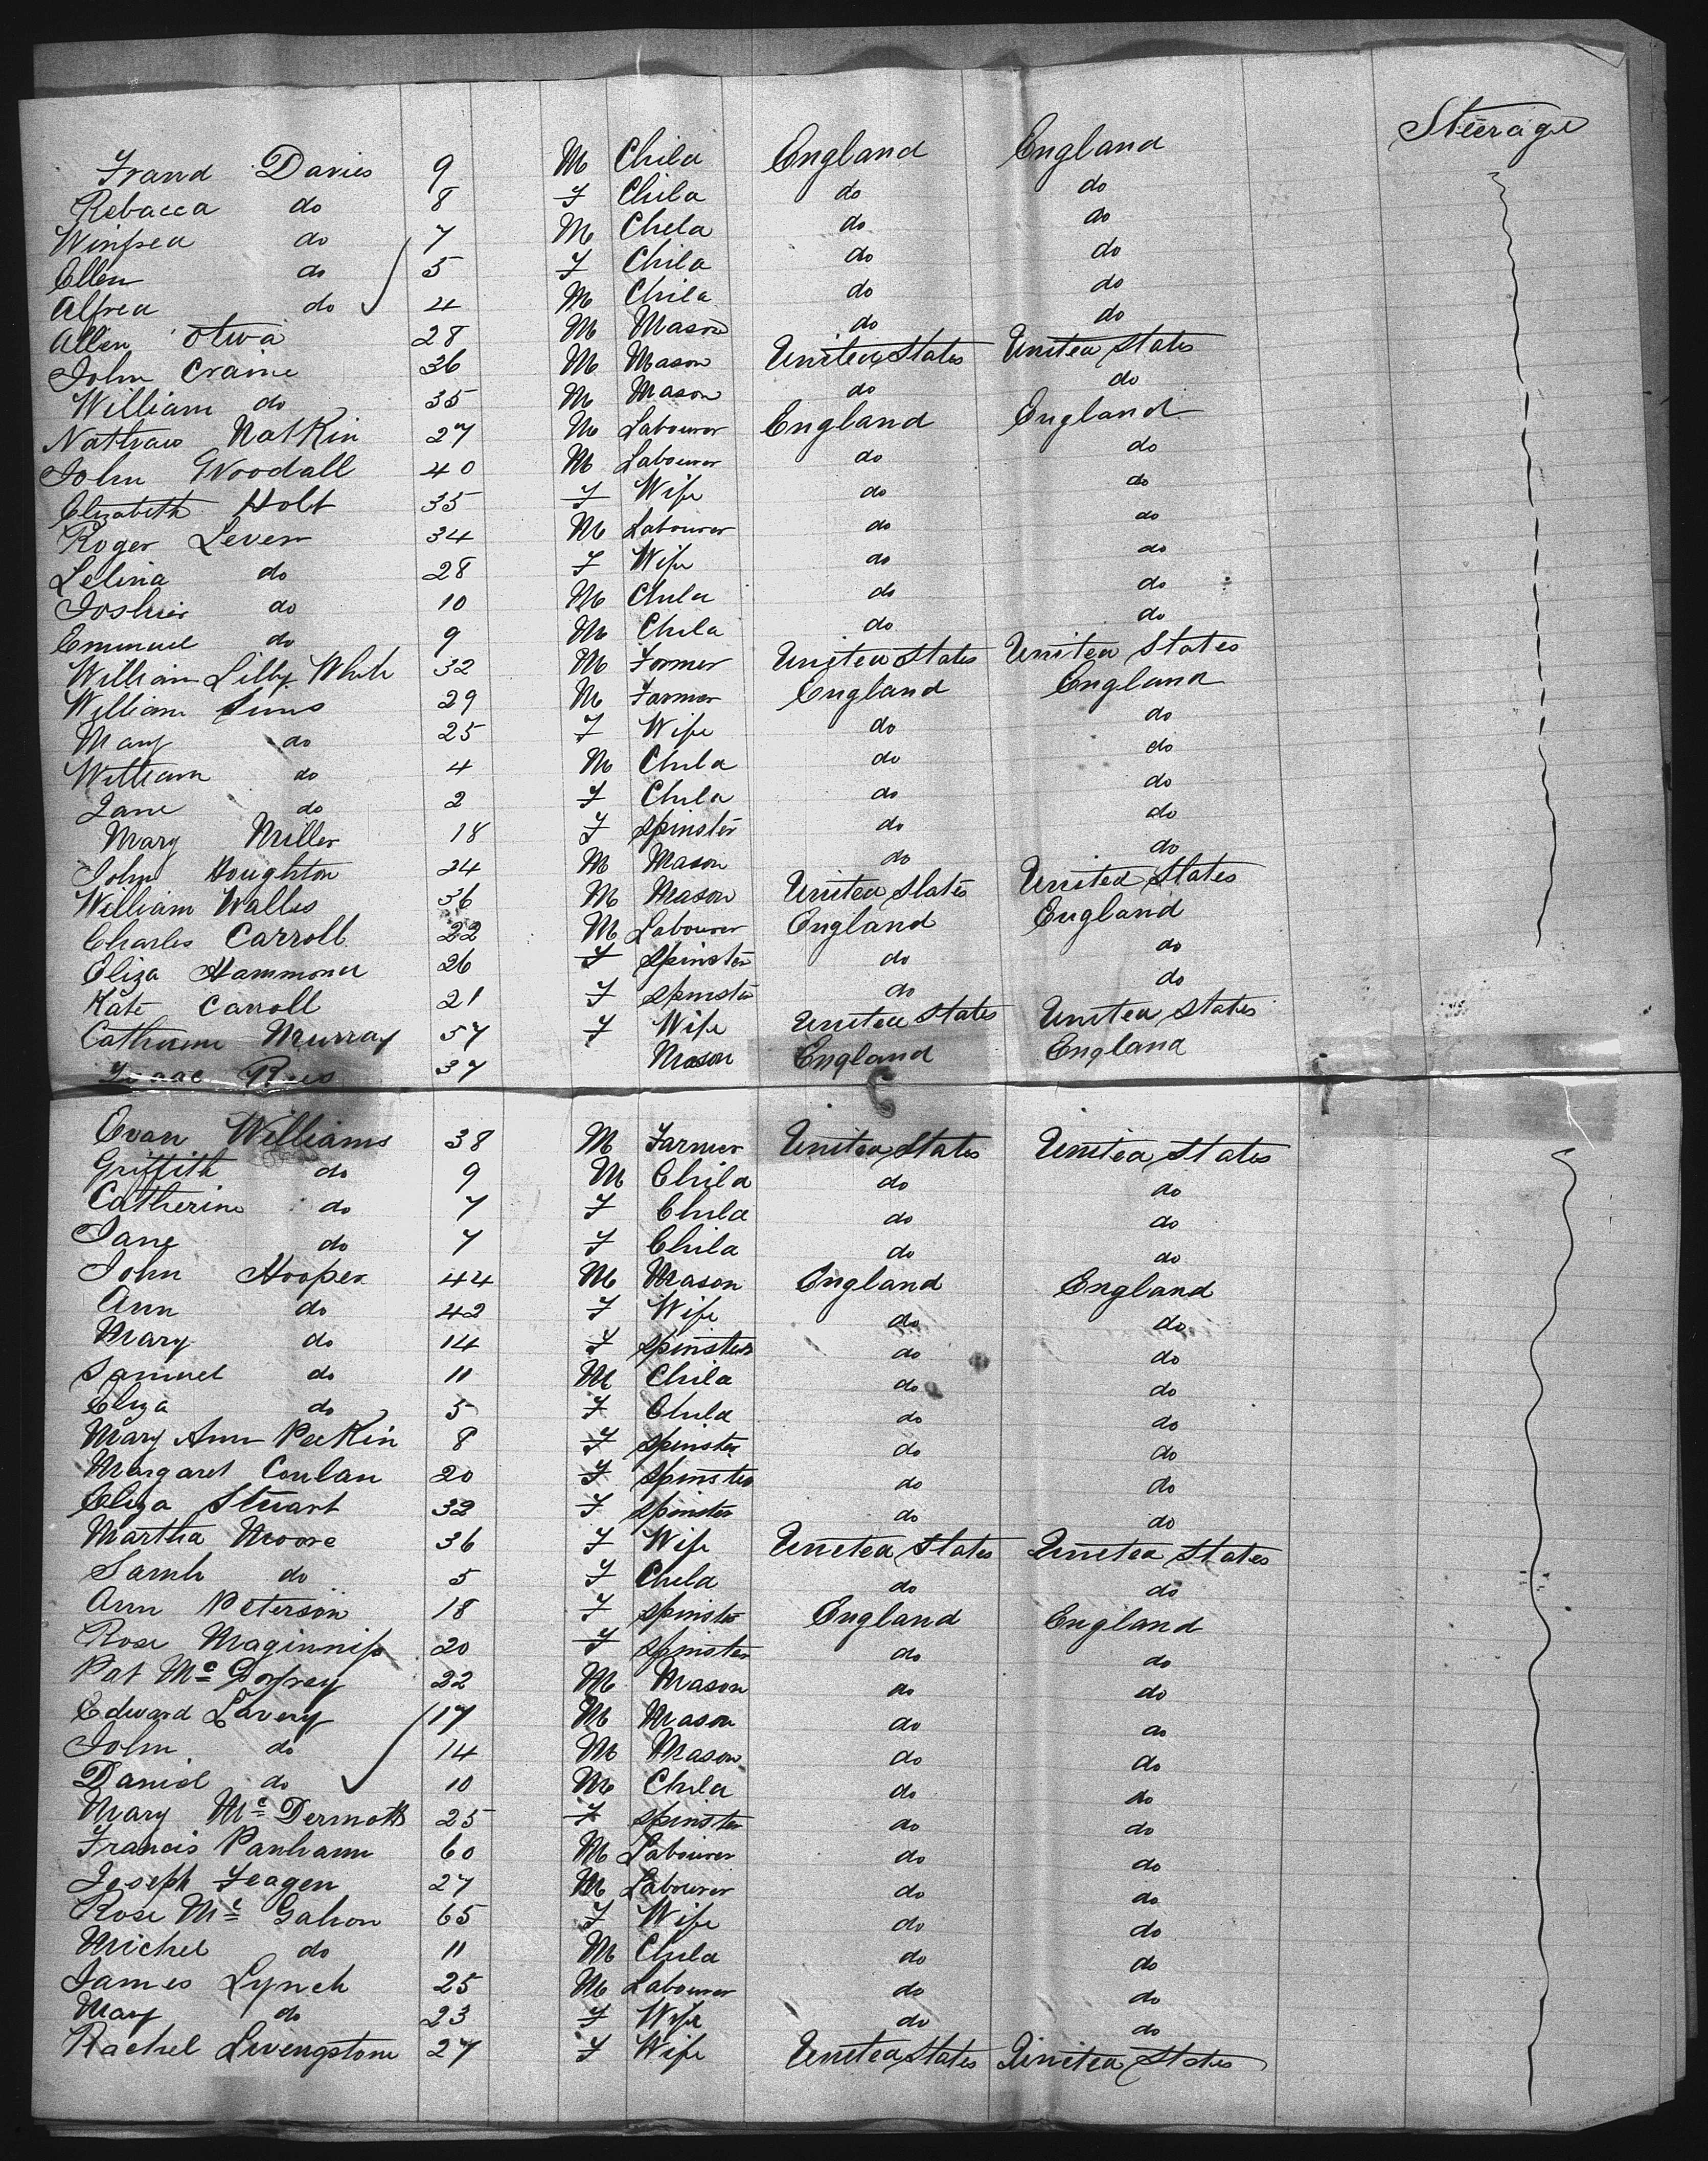 Steerage
Frand Davies 9 M Child England England
Rebacca do 8 F Child do do
Winfred do 7 M Child do do
Ellen do 5 F Child do do
Alfred do 4 M Child do do
Allen 28 M Mason do do
John Craine 36 M Mason United States United States
William do 35 M Mason do do
Nathan Natkin 27 M Labourer England England
John Woodall 40 M Labourer do do
Elizabeth Holt 35 F Wife do do
Roger Lever 34 M Labourer do do
Lelina do 28 F Wife do do
do 10 M Child do do
Emmuel do 9 M Child do do
William Lilly White 32 M Farmer United States United States
William Sims 29 M Farmer England England
Mary do 25 F Wife do do
William do 4 M Child do do
Jane do 2 F Child do do
Mary Miller 18 F Spinster do do
John Houghton 24 M Mason do do
William Wallis 36 M Mason United States United States
Charles Carroll 22 M Labourer England England
Eliza Hammond 26 F Spinster do do
Kate Carroll 21 F Spinster do do
Catherine Murray 57 F Wife United States United States
Isaac Rees 37 Mason England England
C
Evan Williams 38 M Farmer United States United States
Griffith do 9 M Child do do
Catherine do 7 F Child do do
Jane do 7 F Child do do
John Hooper 44 M Mason England England
Ann do 42 F Wife do do
Mary do 14 F Spinster do do
Samuel do 11 M Child do do
Eliza do 5 F Child do do
Mary Ann Peekin 8 F Spinster do do
Margaret Conlan 20 F Spinster do do
Eliza Stuart 32 F Spinster do do
Martha Moore 36 F Wife United States United States
Sarah do 5 F Child do do
Ann Peterson 18 F Spinster England England
Rose Maginniss 20 F Spinster do do
Pat Mc 22 M Mason do do
Edward Lavery 17 M Mason do do
John do 14 M Mason do do
Daniel do 10 M Child do do
Mary McDermott 25 F Spinster do do
Francis Panhann 60 M Labourer do do
Joseph Feagen 27 M Labourer do do
Rose Mc Gahon 65 F Wife do do
Michel do 11 M Child do do
James Lynch 25 M Labourer do do
Mary do 23 F Wife do do
Rachel Livengstone 27 F Wife United States United States